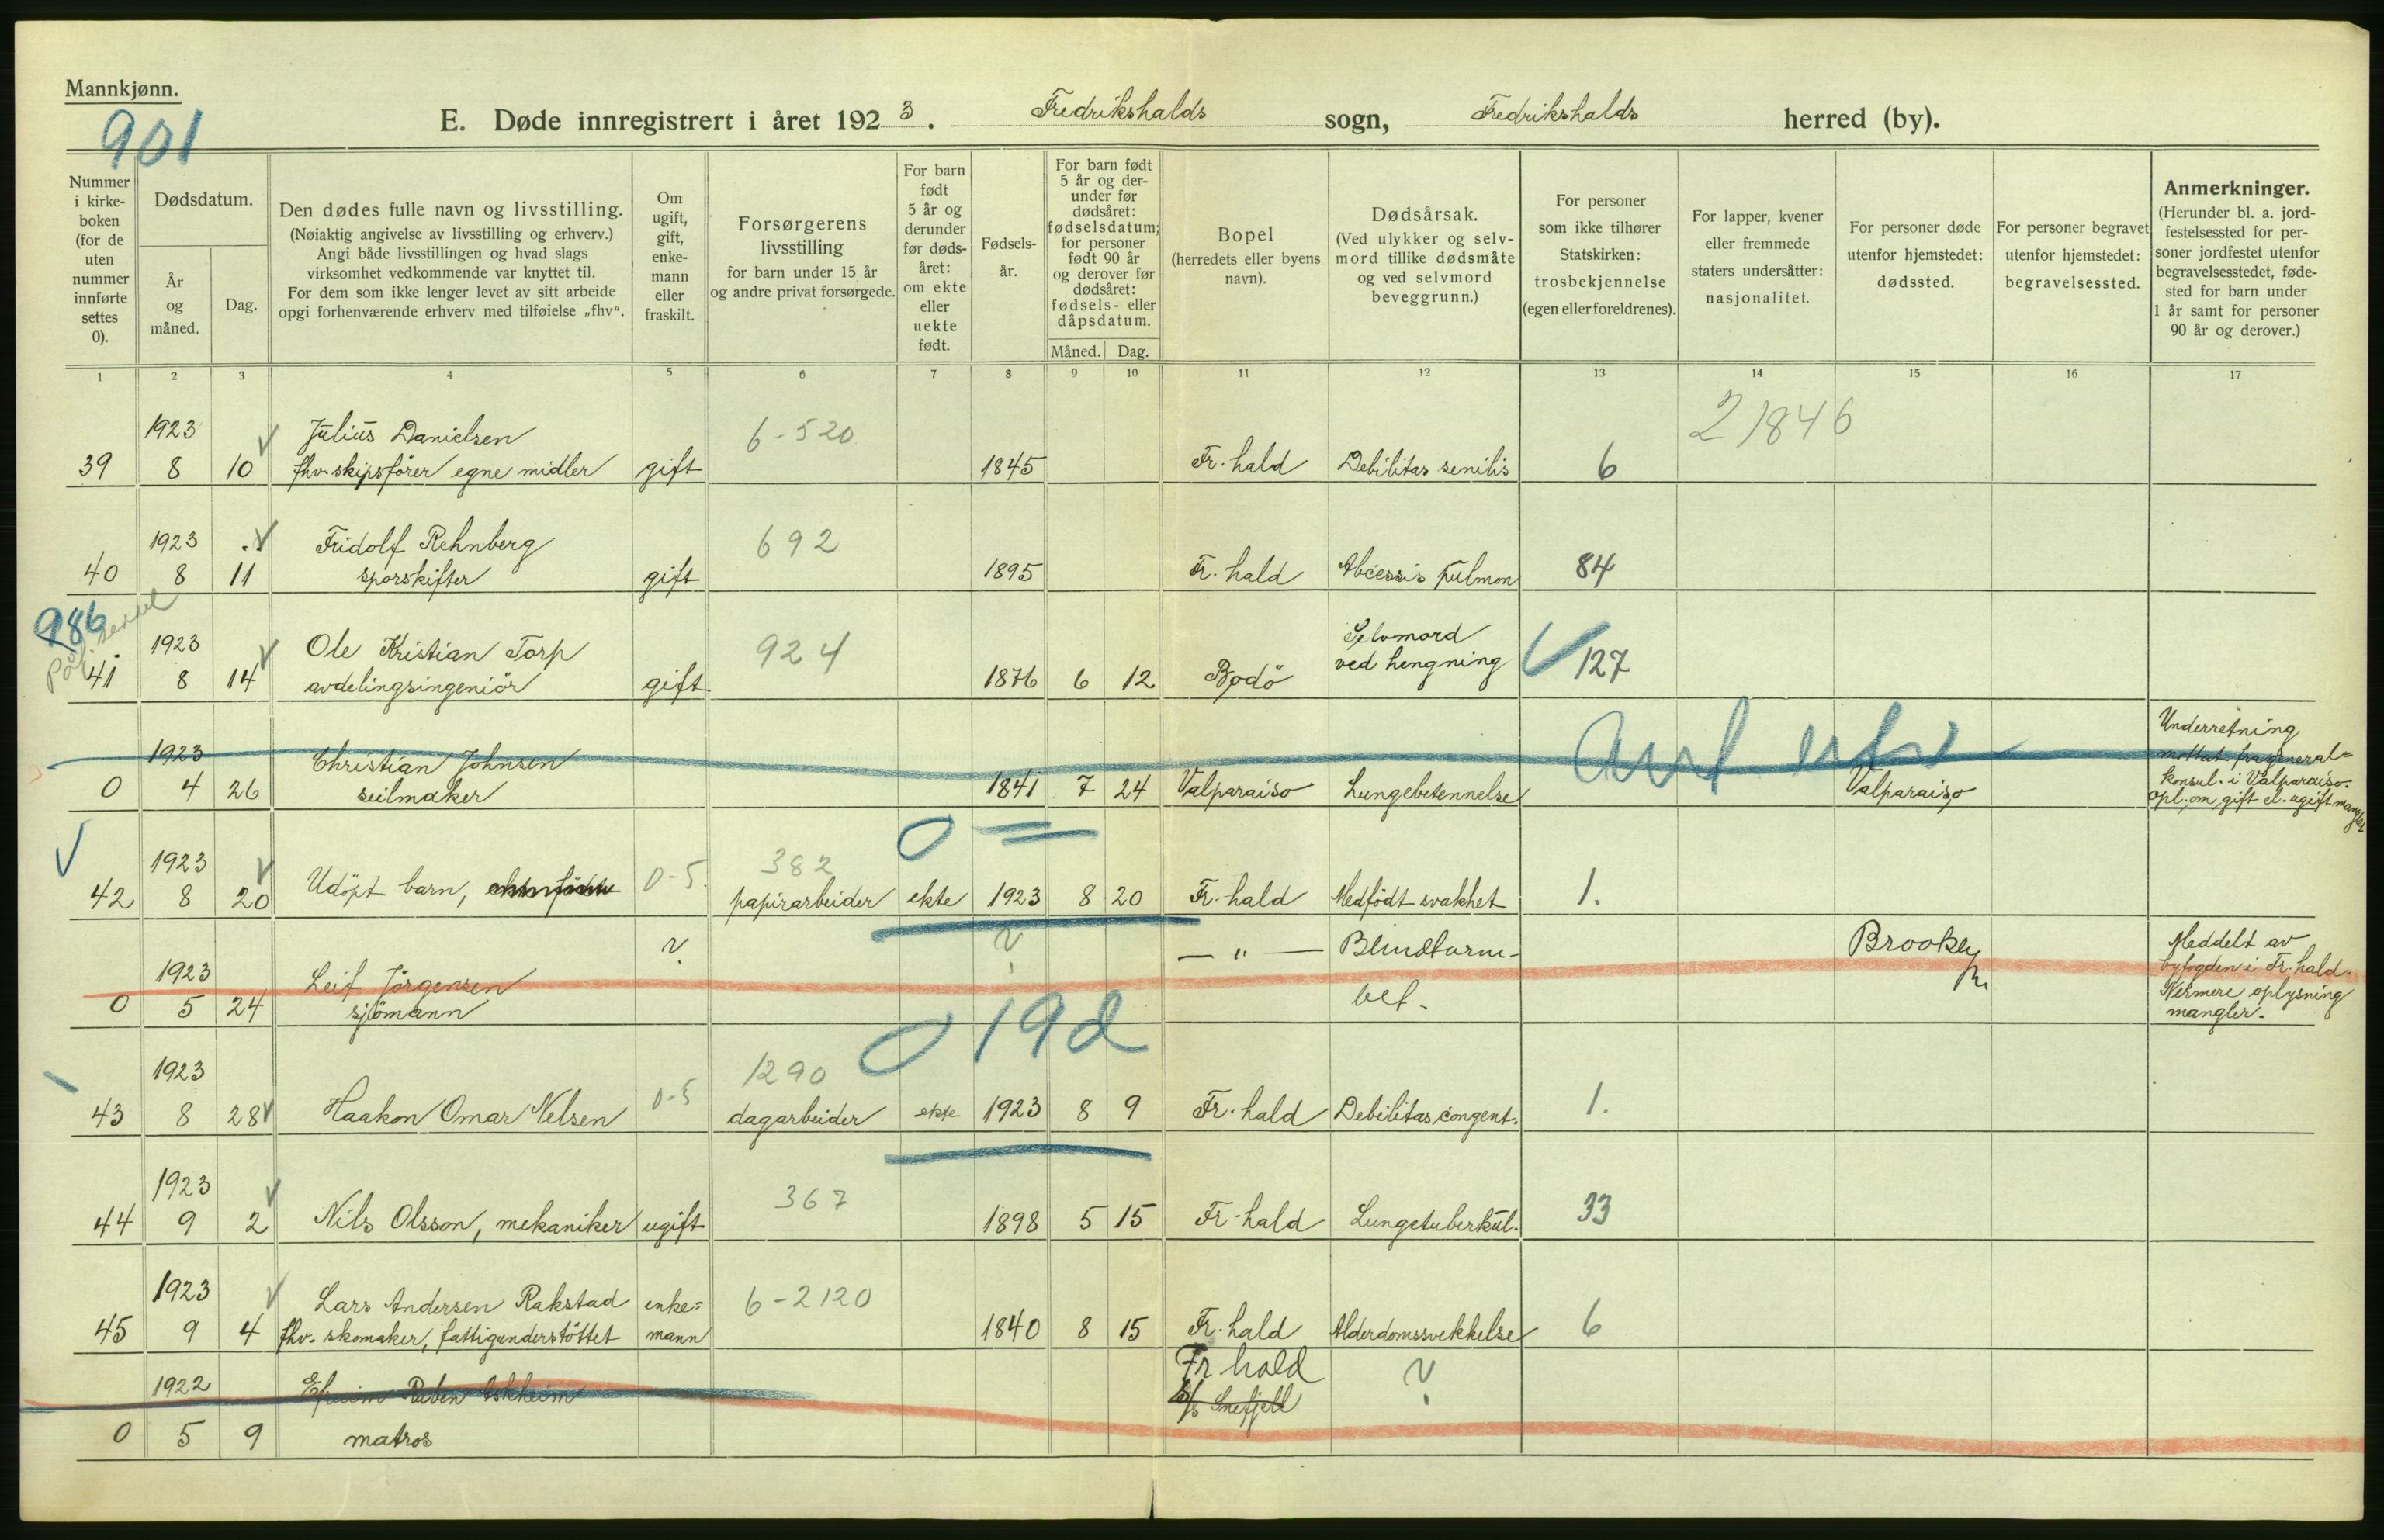 Mannkjønn.
901
E. Døde innregistrert i året 1923. Fredrikshalds sogn, Fredrikshalds herred (by).
Nummer i kirke-boken (for de uten nummer innførte settes 0).
Dødsdatum.
År og måned.
Dag.
Den dødes fulle navn og livsstilling.
(Nøiaktig angivelse av livsstilling og erhverv.)
Angi både livsstillingen og hvad slags
virksomhet vedkommende var knyttet til.
For dem som ikke lenger levet av sitt arbeide
opgi forhenværende erhverv med tilføielse „fhv“.
Om ugift, gift, enke-mann eller fraskilt.
Forsørgerens livsstilling
for barn under 15 år
og andre privat forsørgede.
For barn født 5 år og derunder før døds-året: om ekte eller uekte født.
Fødsels-år.
For barn født 5 år og der-under før dødsåret: fødselsdatum; for personer født 90 år og derover før dødsåret: fødsels- eller dåpsdatum.
Måned. Dag.
Bopel
(herredets eller byens navn).
Dødsårsak.
(Ved ulykker og selv-mord tillike dødsmåte og ved selvmord beveggrunn.)
For personer som ikke tilhører Statskirken: trosbekjennelse (egen eller foreldrenes).
For lapper, kvener eller fremmede staters undersåtter: nasjonalitet.
For personer døde utenfor hjemstedet: dødssted.
For personer begravet utenfor hjemstedet: begravelsessted.
Anmerkninger.
(Herunder bl. a. jord-festelsessted for per-soner jordfestet utenfor begravelsesstedet, føde-sted for barn under 1 år samt for personer 90 år og derover.)
1 2 3 4 5 6 7 8 9 10 11 12 13 14 15 16 17
1923 Julius Danielsen 6-520 21846
39 8 10 fhv. skipsfører egne midler gift 1845 Fr.hald Debilitas senilis 6
1923 Fridolf Rehnberg 692
40 8 11 sporskifter gift 1895 Fr.hald Abcessis pulmon 84
986
1923 Ole Kristian Torp 924 Selvmord
41 8 14 avdelingsingeniör gift 1876 6 12 Bodö ved hengning 127
1923 Christian Johnsen
0 4 26 seilmaker 1841 7 24 Valparaiso Lungebetennelse Valparaiso
Underretning
mottat fra general=
konsul. i Valparaiso.
Opl. om gift el. ugift mangler
1923 0-5. 382 0
42 8 20 Udöpt barn, papirarbeider ekte 1923 8 20 Fr.hald Medfödt svakhet 1.
1923 Leif Jörgensen ? ? — " — Blindtarm-
0 5 24 sjömann bet. Brooklyn
Meddelt av
byfogden i Fr.hald.
Nermere oplysning
mangler.
1923 1290 0 19d
43 8 28 Haakon Omar Nelsen 0-5 dagarbeider ekte 1923 8 9 Fr.hald Debilitas congent. 1.
1923 367
44 9 2 Nils Olsson, mekaniker ugift 1898 5 15 Fr.hald Lungetuberkul. 33
1923 Lars Andersen Rakstad enke= 6-2120
45 9 4 fhv. skomaker, fattigunderstöttet mann 1840 8 15 Fr.hald Alderdomssvekkelse 6
1922 Efraim Ruben Askheim Fr hald ?
D/S Snefjell
0 5 9 matros